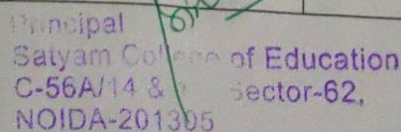 Principal
Satyam College of Education
C-56A/14 & Sector-62,
NOIDA-201305